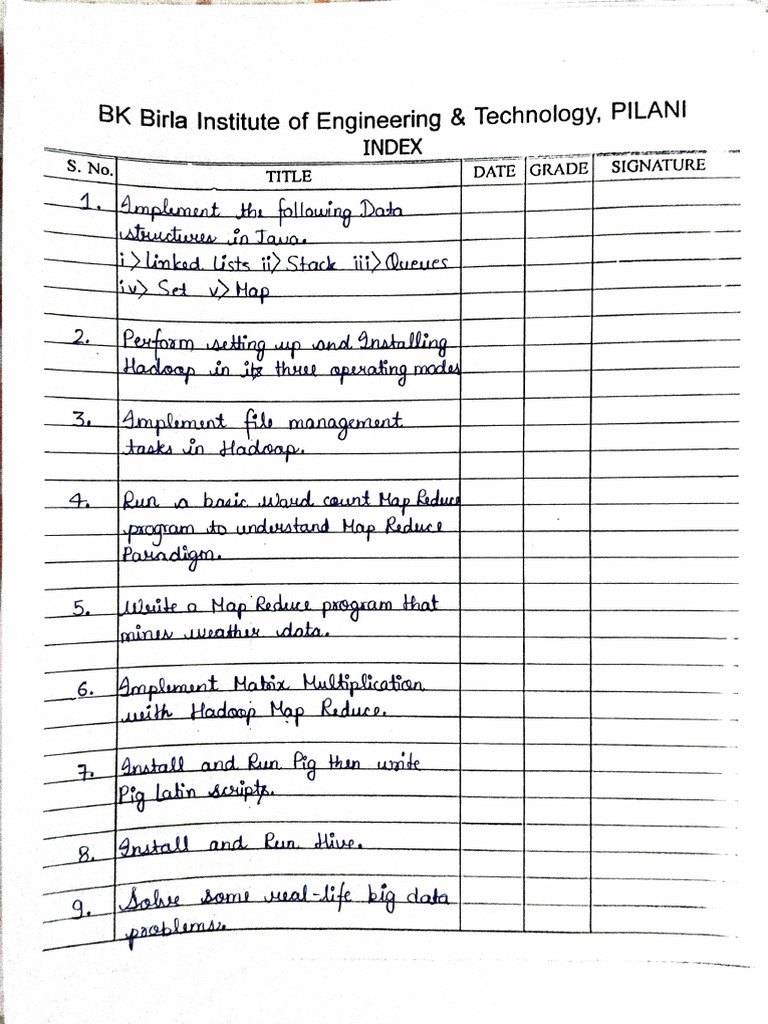 BK Birla Institute of Engineering & Technology, PILANI
INDEX
S. No. TITLE DATE GRADE SIGNATURE
1. Implement the following Data
structures in Java.
i> Linked Lists ii> Stack iii> Queues
iv> Set v> Map
2. Perform setting up and Installing
Hadoop in its three operating modes
3. Implement file management
tasks in Hadoop.
4. Run a basic word count Map Reduce
program to understand Map Reduce
Paradigm.
5. Write a Map Reduce program that
mines weather data.
6. Implement Matrix Multiplication
with Hadoop Map Reduce.
7. Install and Run Pig then write
Pig Latin scripts.
8. Install and Run Hive.
9. Solve some real-life big data
problems.